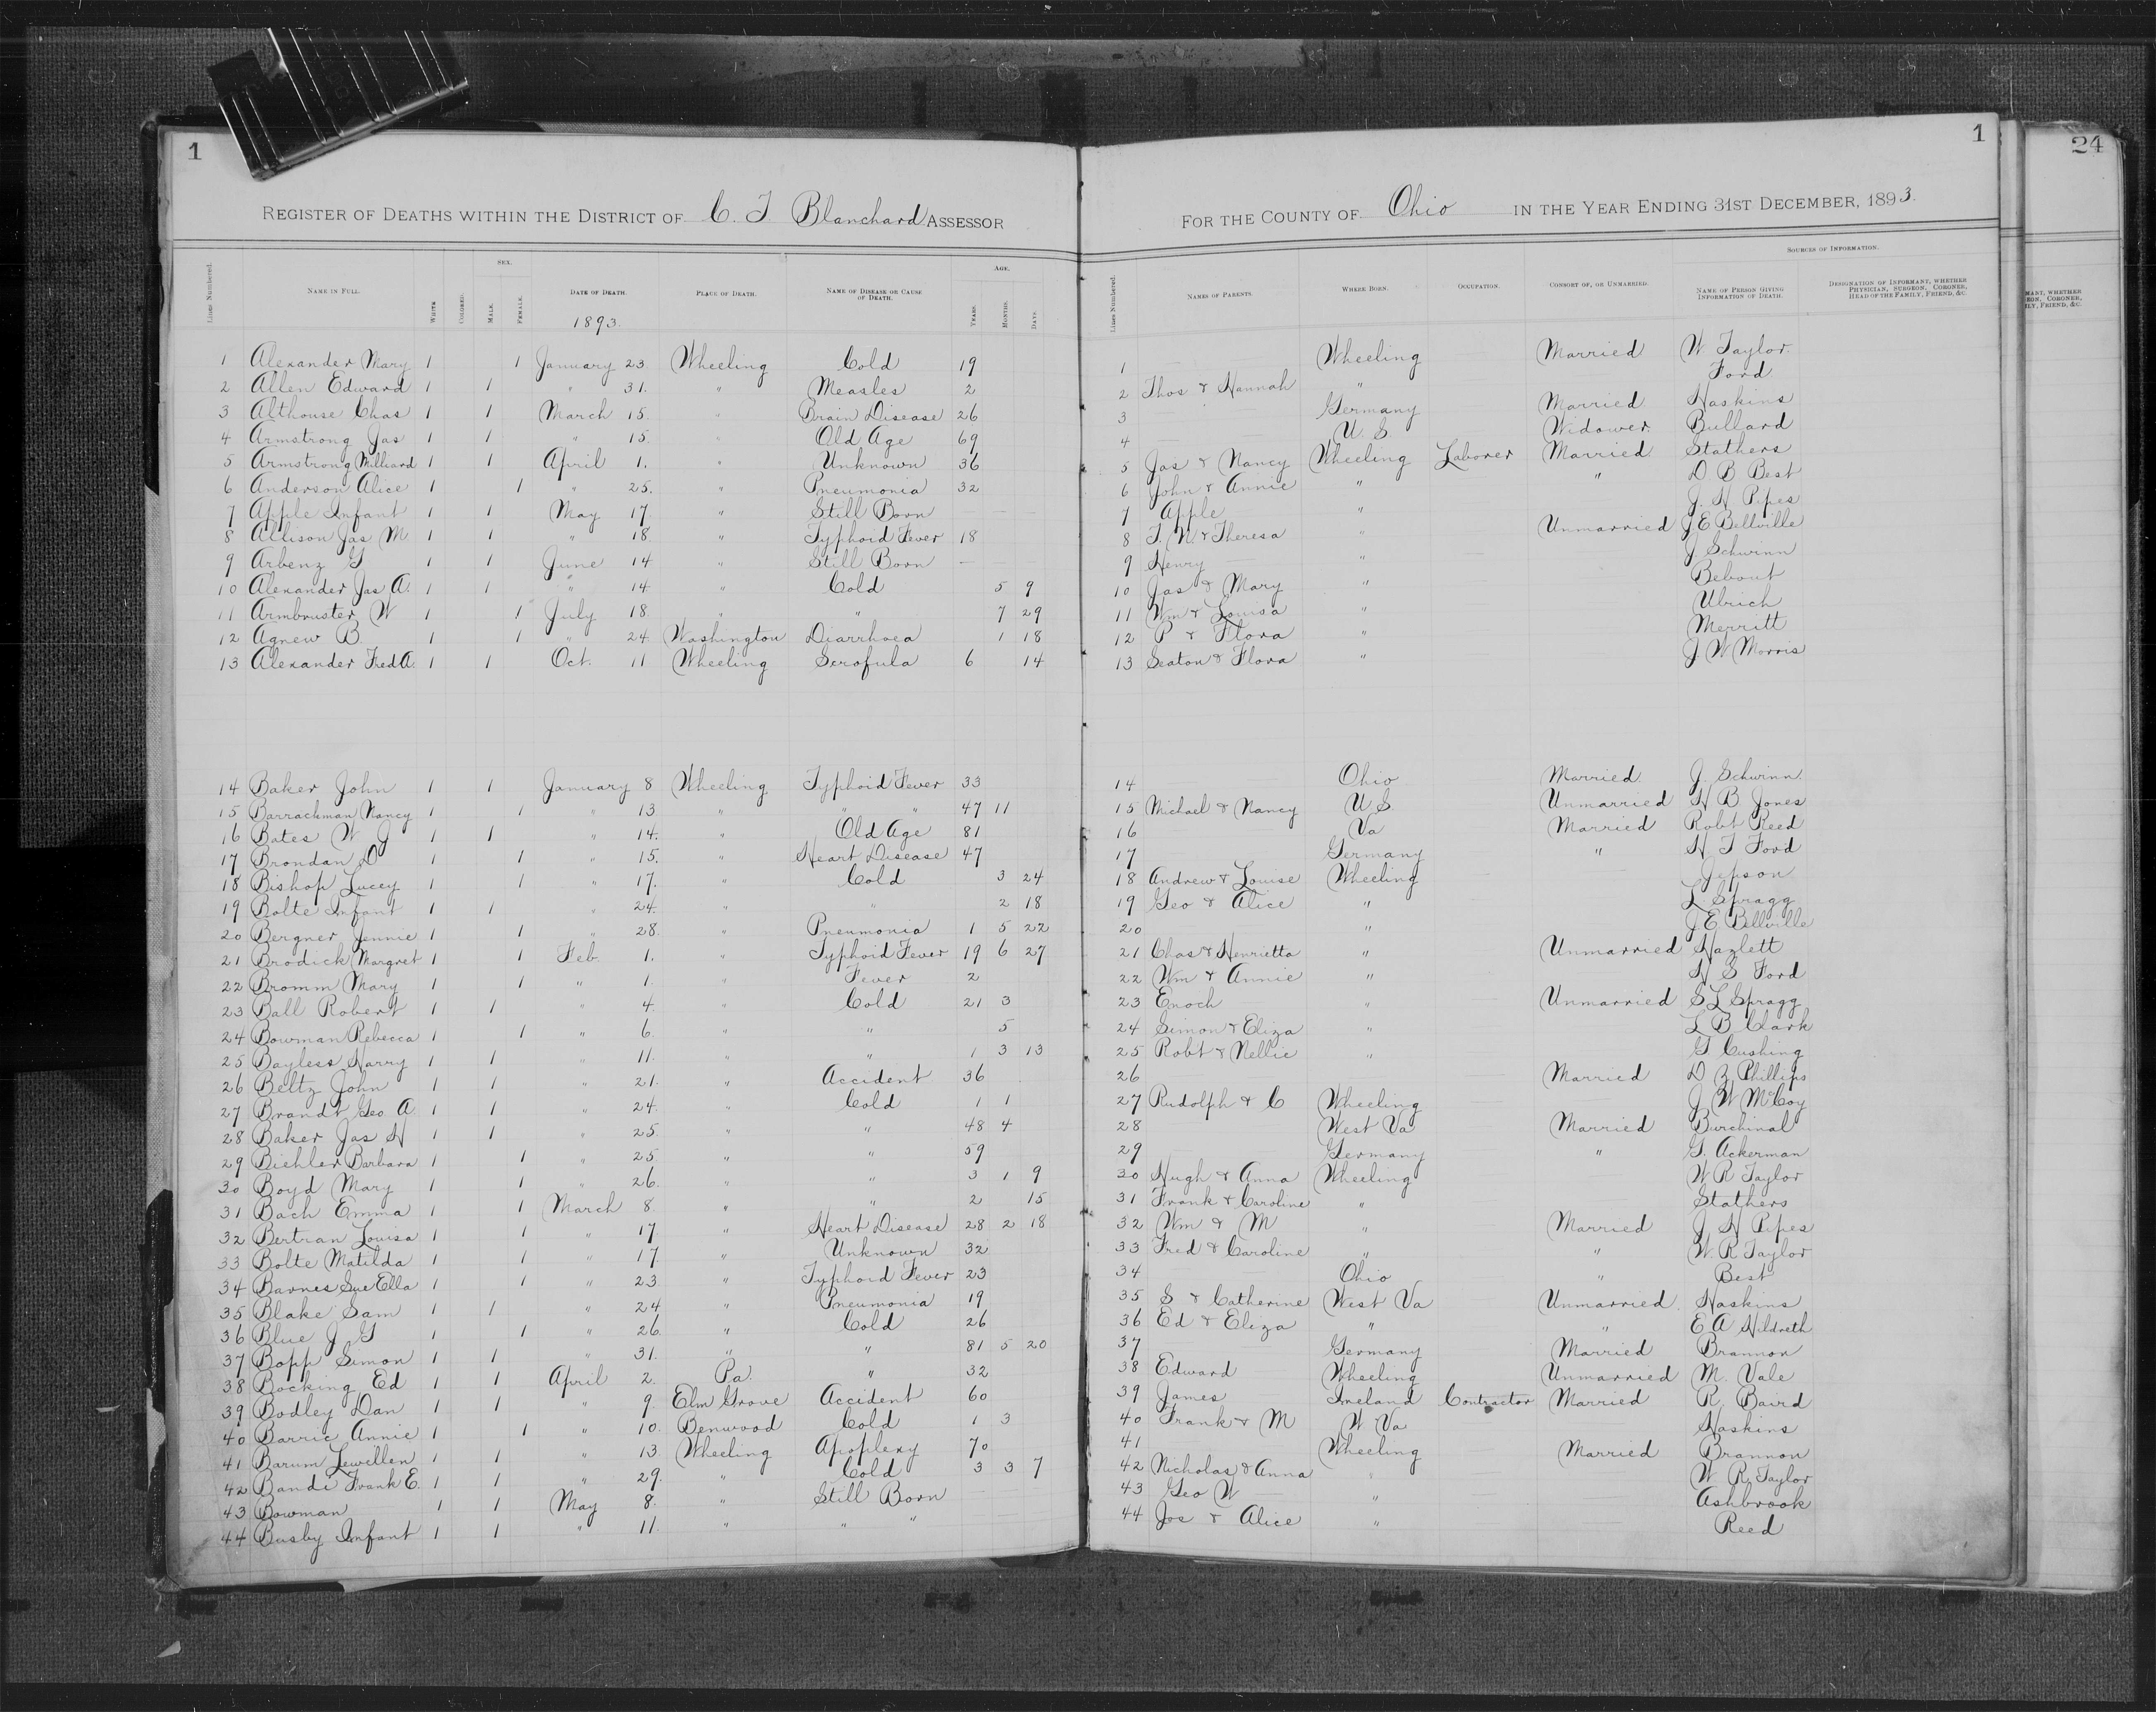 1
REGISTER OF DEATHS WITHIN THE DISTRICT OF C. T. Blanchard ASSESSOR
LINES NUMBERED. NAME IN FULL. WHITE COLORED. SEX. MALE. FEMALE. DATE OF DEATH. PLACE OF DEATH. NAME OF DISEASE OR CAUSE OF DEATH. AGE. YEARS. MONTHS. DAYS.
1893.
1 Alexander Mary 1 1 January 23. Wheeling Cold 19
2 Allen Edward 1 1 " 31. " Measles 2
3 Althouse Chas 1 1 March 15. " Brain Disease 26
4 Armstrong Jas 1 1 " 15. " Old Age 69
5 Armstrong Milliard 1 1 April 1. " Unknown 36
6 Anderson Alice 1 1 " 25. " Pneumonia 32
7 Apple Infant 1 1 May 17. " Still Born
8 Allison Jas M. 1 1 " 18. " Typhoid Fever 18
9 Arbenz G 1 1 June 14 " Still Born
10 Alexander Jas A. 1 1 " 14 " Cold 5 9
11 Armbruster W 1 1 July 18. " " 7 29
12 Agnew B. 1 1 " 24. Washington Diarrhoea 1 18
13 Alexander Fred A. 1 1 Oct. 11 Wheeling Scrofula 6 14
14 Baker John 1 1 January 8 Wheeling Typhoid Fever 33
15 Barrachman Nancy 1 1 " 13. " " " 47 11
16 Bates W J 1 1 " 14. " Old Age 81
17 Brondan D 1 1 " 15. " Heart Disease 47
18 Bishop Lucey 1 1 " 17. " Cold 3 24
19 Bolte Infant 1 1 " 24. " " 2 18
20 Bergner Jennie 1 1 " 28. " Pneumonia 1 5 22
21 Brodick Margret 1 1 Feb. 1. " Typhoid Fever 19 6 27
22 Bromm Mary 1 1 " 1. " Fever 2
23 Ball Robert 1 1 " 4. " Cold 21 3
24 Bowman Rebecca 1 1 " 6. " " 5
25 Bayless Harry 1 1 " 11. " " 1 3 13
26 Beltz John 1 1 " 21. " Accident 36
27 Brandt Geo A. 1 1 " 24. " Cold 1 1
28 Baker Jas H 1 1 " 25. " " 48 4
29 Biehler Barbara 1 1 " 25. " " 59
30 Boyd Mary 1 1 " 26. " " 3 1 9
31 Bach Emma 1 1 March 8. " " 2 15
32 Bertran Louisa 1 1 " 17 " Heart Disease 28 2 18
33 Bolte Matilda 1 1 " 17. " Unknown 32
34 Barnes Sue Ella 1 1 " 23. " Typhoid Fever 23
35 Blake Sam 1 1 " 24 " Pneumonia 19
36 Blue J G 1 1 " 26. " Cold 26
37 Bopp Simon 1 1 " 31. " " 81 5 20
38 Bocking Ed 1 1 April 2. Pa. " 32
39 Bodley Dan 1 1 " 9. Elm Grove Accident 60
40 Barric Annie 1 1 " 10. Benwood Cold 1 3
41 Barum Lewillen 1 1 " 13 Wheeling Apoplexy 70
42 Bandi Frank E. 1 1 " 29. " Cold 3 3 7
43 Bowman 1 1 May 8. " Still Born
44 Busby Infant 1 1 " 11. " " "
1
FOR THE COUNTY OF Ohio IN THE YEAR ENDING 31ST DECEMBER, 1893.
LINES NUMBERED. NAMES OF PARENTS. WHERE BORN. OCCUPATION. CONSORT OF, OR UNMARRIED. SOURCES OF INFORMATION. NAME OF PERSON GIVING INFORMATION OF DEATH. DESIGNATION OF INFORMANT, WHETHER PHYSICIAN, SURGEON, CORONER, HEAD OF THE FAMILY, FRIEND, &C.
1 Wheeling Married W Taylor.
2 Thos & Hannah " Ford
3 Germany Married Haskins
4 U. S. Widower. Bullard
5 Jas & Nancy Wheeling Laborer Married Stathers
6 John & Annie " " D B Best
7 Apple " J. H Pipes
8 T. N. & Theresa " Unmarried J E Bellville
9 Henry " J. Schwinn
10 Jas & Mary " Bebout
11 Wm & Louisa " Ulrich
12 P & Flora " Merritt
13 Seaton & Flora " J W Morris
14 Ohio Married. J. Schwinn.
15 Michael & Nancy U S. Unmarried H B Jones
16 Va Married Robt Reed
17 Germany " H T Ford
18 Andrew & Louise Wheeling Jepson
19 Geo & Alice " L Spragg
20 " J E Bellville
21 Chas & Henrietta " Unmarried Hazlett
22 Wm & Annie " H S Ford
23 Enoch " Unmarried S L Spragg
24 Simon & Eliza " L B Clark
25 Robt & Nellie " G Cushing
26 Married D Z Phillips
27 Rudolph & C Wheeling J W McCoy
28 West Va Married Burchinal
29 Germany " G. Ackerman
30 Hugh & Anna Wheeling W R Taylor
31 Frank & Caroline " Stathers
32 Wm & M " Married J H Pipes
33 Fred & Caroline " " W. R Taylor
34 Ohio " Best
35 S & Catherine West Va Unmarried. Haskins
36 Ed & Eliza " " E A Hildreth
37 Germany Married Brannon
38 Edward Wheeling Unmarried M. Vale
39 James Ireland Contractor Married R. Baird
40 Frank & M W Va Haskins
41 Wheeling Married Brannon
42 Nicholas & Anna " W R Taylor
43 Geo W " Ashbrook
44 Jos & Alice " Reed
24
MANT, WHETHER
EON, CORONER,
ILY, FRIEND, &C.